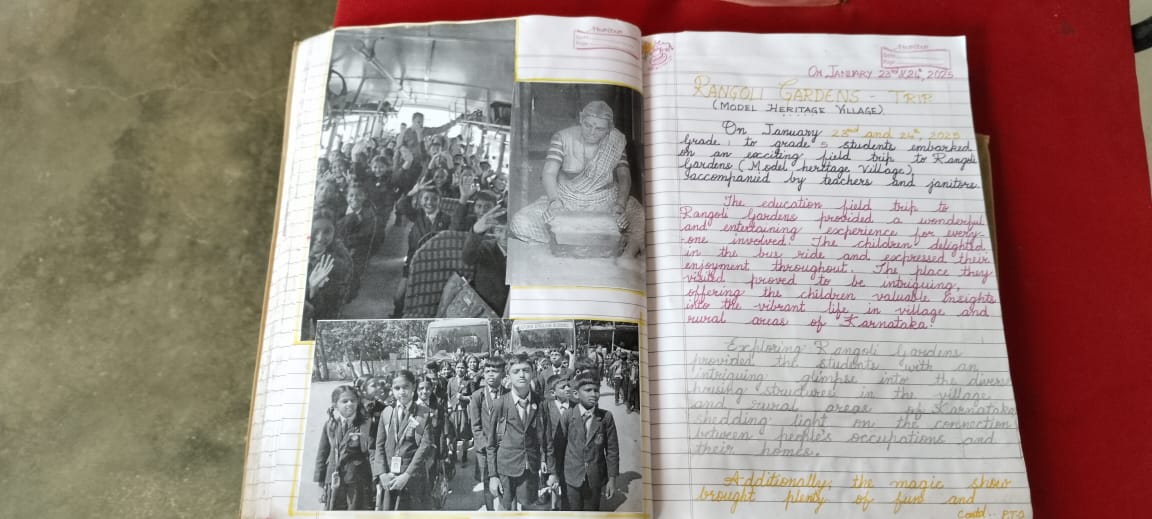 On January 23rd & 24th, 2025
Rangoli Gardens - Trip
(Model Heritage Village)
On January 23rd and 24th, 2025
Grade 1 to grade 5 students embarked
on an exciting field trip to Rangoli
Gardens (Model heritage Village),
accompanied by teachers and janitors.
The education field trip to
Rangoli Gardens provided a wonderful
and entertaining experience for every-
-one involved. The children delighted
in the bus ride and expressed their
enjoyment throughout. The place they
visited proved to be intriguing,
offering the children valuable insights
into the vibrant life in village and
rural areas of Karnataka.
Exploring Rangoli Gardens
provided the students with an
intriguing glimpse into the diverse
housing structures in the village
and rural areas of Karnataka
shedding light on the connection
between people's occupations and
their homes.
Additionally, the magic show
brought plenty of fun and
Contd.. P.T.O